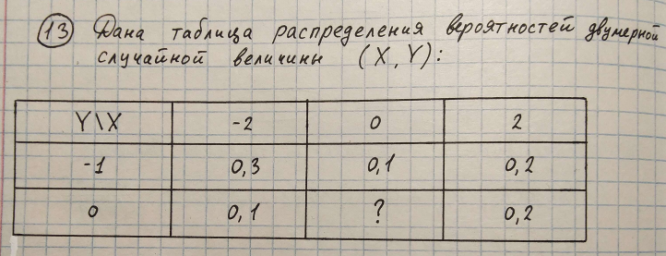 13 Дана таблица распределения вероятностей двумерной
случайной величины (X, Y):
Y\X -2 0 2
-1 0,3 0,1 0,2
0 0,1 ? 0,2